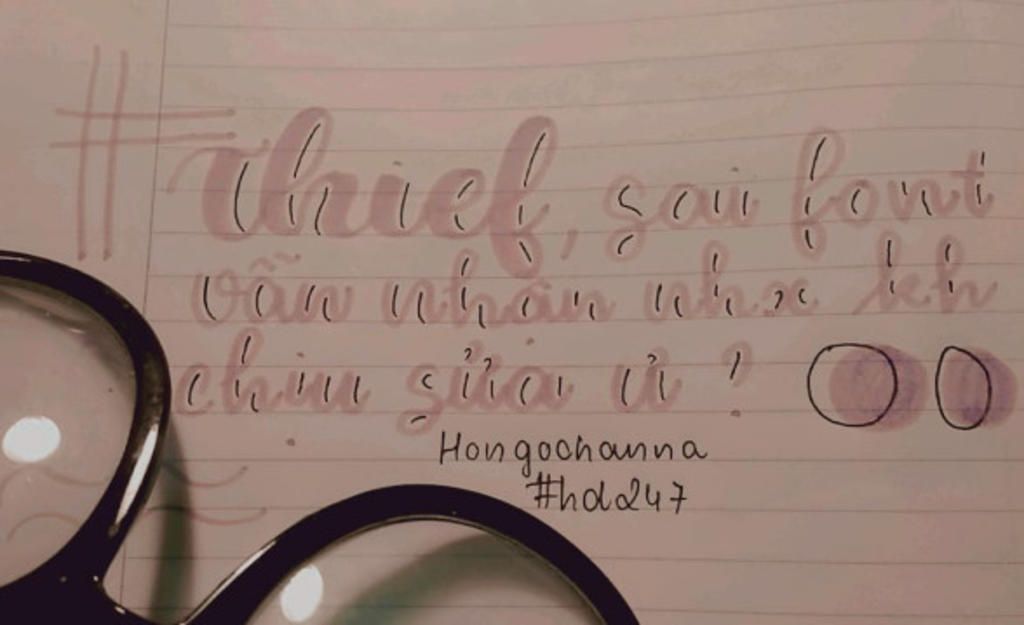 #Thief, sou font
vẫn nhân nhx kh
chiu sửa ư ?
Hongochanna
#hd247